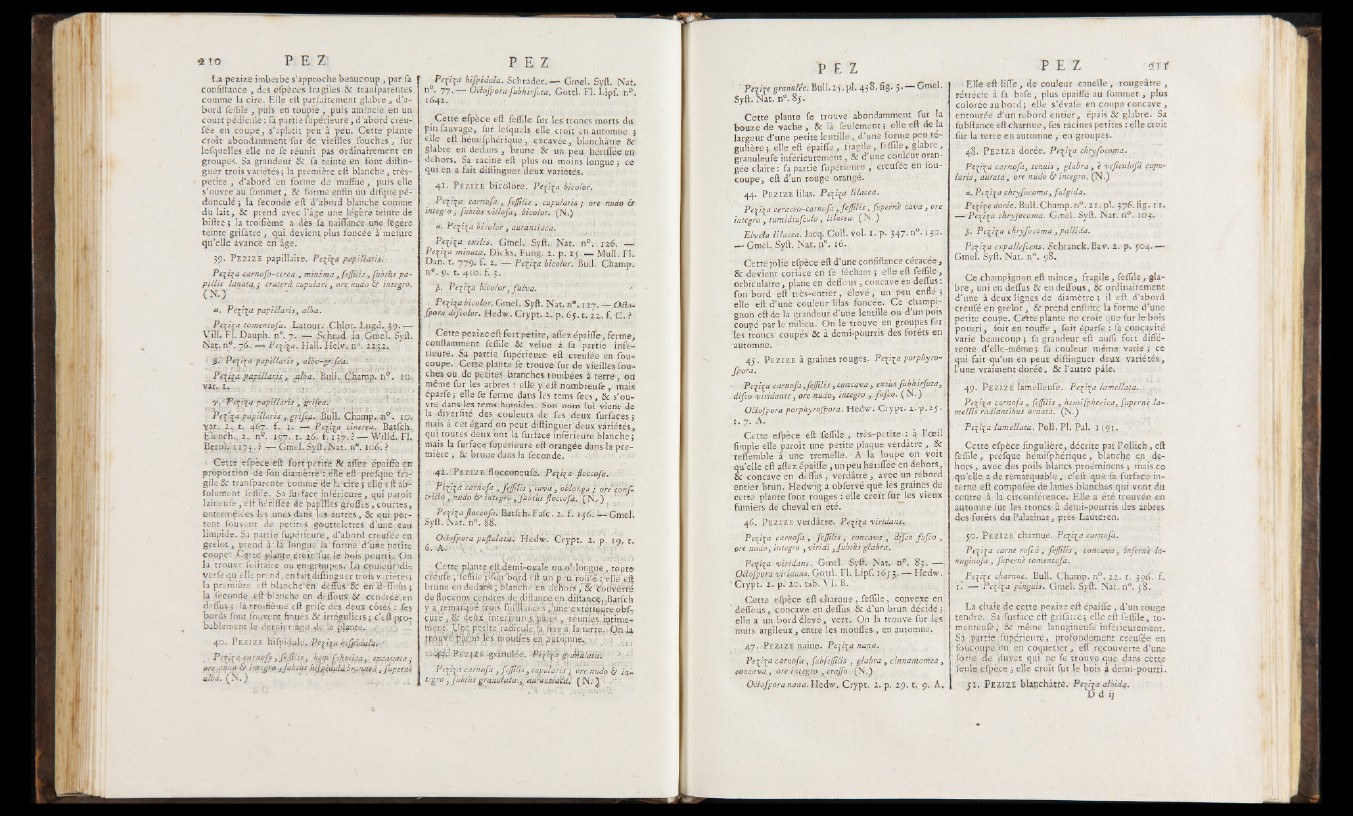 210 P E Z
La pezize imberbe s'approche beaucoup, par ſa
conſiſtance, des eſpèces fragiles & tranſparentes
comme la cire. Elle eſt parfaitement glabre, d'a-
bord ſeſſile, puis en toupie, puis amincie en un
court pédicule : ſa partie ſupérieure, d'abord creu-
ſée en coupe, s'aplatit peu à peu. Cette plante
croît abondamment ſur de vieilles ſouches, ſur
leſquelles elle ne ſe réunit pas ordinairement en
groupes. Sa grandeur & ſa teinte en font diſtin-
guer trois variétés; la première eſt blanche, très-
petite, d'abord en forme de maſſue, puis elle
s'ouvre au ſommet, & forme enfin un diſque pé-
donculé; la ſeconde eſt d'abord blanche comme
du lait, & prend avec l'âge une légère teinte de
biſtre; la troiſième a dès ſa naiſſance une légère
teinte griſâtre, qui devient plus foncée à meſure
qu'elle avance en âge.
39. PEZIZE papillaire. Peziza papillaris.
Peziza carnoſo-cerea, minima, ſeſſilis, ſubtùs pa-
pillis lanata; craterâ cupulari, ore nudo & integro.
(N.)
α. Peziza papillaris, alba.
Peziza tomentoſa. Latour. Chlor. Lugd. 39. —
Vill. Fl. Dauph. n°. 7. — Schrad. in Gmel. Syſt.
Nat. n°. 76. — Peziza. Hall. Helv. n°. 2232.
β. Peziza papillaris, albo-griſea.
Peziza papillaris, alba. Bull. Champ. n°. 10.
var. 1.
γ. Peziza papillaris, griſea.
Peziza papillaris, griſea. Bull. Champ. n°. 10,
var. 2, t. 467. f. 1. — Peziza cinerea. Batſch.
Elench. 2. n°. 197. t. 26. f. 137. ? — Willd. Fl.
Berol. 1173. ? — Gmel. Syſt. Nat. n°. 106. ?
Cette eſpèce eſt fort petite & aſſez épaiſſe en
proportion de ſon diamètre : elle eſt preſque fra-
gile & tranſparente comme de la cire; elle eſt ab-
ſolument ſeſſile. Sa ſurface inférieure, qui paroît
laineuſe, eſt hériſſée de papilles groſſes, courtes,
entremêlées les unes dans les autres, & qui por-
tent ſouvent de petites gouttelettes d'une eau
limpide. Sa partie ſupérieure, d'abord creuſée en
grelot, prend à la longue la forme d'une petite
coupe. Cette plante croît ſur le bois pourri. On
la trouve ſolitaire ou en groupes. La couleur di-
verſe qu'elle prend, en fait diſtinguer trois variétés;
la première eſt blanche en deſſus & en deſſous;
la ſeconde eſt blanche en deſſous & cendrée en
deſſus; la troiſième eſt griſe des deux côtés : ſes
bords ſont ſouvent ſinués & irréguliers; c'eſt pro-
bablement le dernier âge de la plante.
40. PEZIZE hiſpidule. Peziza hiſpidula.
Peziza carnoſa, ſeſſilis, hemiſphærica, excavata;
ore nudo & integro, ſubtùs hiſpidula brunnea, ſupernè
alba. (N.)
P E Z
Peziza hiſpidula. Schrader. — Gmel. Syſt. Nat.
n°. 77. — Octoſpora ſubhirſuta. Gotel. Fl. Lipſ. n°.
1642.
Cette eſpèce eſt ſeſſile ſur les troncs morts du
pin ſauvage, ſur leſquels elle croît en automne :
elle eſt hémiſphérique, excavée, blanchâtre &
glabre en dedans, brune & un peu hériſſée en-
dehors. Sa racine eſt plus ou moins longue; ce
qui en a fait diſtinguer deux variétés.
41. PEZIZE bicolore. Peziza bicolor.
Peziza carnoſa, ſeſſilis, cupularis; ore nudo &
integro, ſubtùs villoſa, bicolor. (N.)
α. Peziza bicolor, aurantiaca.
Peziza exilis. Gmel. Syſt. Nat. n°. 126. —
Peziza minuta. Dicks. Fung. 2. p. 25. — Mull. Fl.
Dan. t. 779. f. 2. — Peziza bicolor. Bull. Champ.
n°. 9. t. 410. f. 3.
β. Peziza bicolor, fulva.
Peziza bicolor. Gmel. Syſt. Nat. n°. 127. — Octo-
ſpora diſcolor. Hedw. Crypt. 2. p. 65. t. 22. f. C. ?
Cette pezize eſt fort petite, aſſez épaiſſe, ferme,
conſtamment ſeſſile & velue à ſa partie infé-
rieure. Sa partie ſupérieure eſt creuſée en ſou-
coupe. Cette plante ſe trouve ſur de vieilles ſou-
ches ou de petites branches tombées à terre, ou
même ſur les arbres : elle y eſt nombreuſe, mais
éparſe; elle ſe ferme dans les tems ſecs, & s'ou-
vre dans les tems humides. Son nom lui vient de
la diverſité des couleurs de ſes deux ſurfaces;
mais à cet égard on peut diſtinguer deux variétés,
qui toutes deux ont la ſurface inférieure blanche;
mais la ſurface ſupérieure eſt orangée dans la pre-
mière, & brune dans la ſeconde.
42. PEZIZE floconneuſe. Peziza floccoſa.
Peziza carnoſa, ſeſſilis, cava, oblonga; ore conſ-
tricto, nudo & integro, ſubtùs floccoſa. (N.)
Peziza floccoſa. Batſch. Faſc. 2. f. 156. — Gmel.
Syſt. Nat. n°. 88.
Octoſpora puſtulata. Hedw. Crypt. 2. p. 19. t.
6. A.
Cette plante eſt demi-ovale ou oblongue, toute
creuſe, ſeſſile; ſon bord eſt un peu roulé; elle eſt
brune en dedans, blanche en dehors, & couverte
de floccons cendrés de diſtance en diſtance. Batſch
y a remarqué trois ſubſtances, une extérieure obſ-
cure, & deux intérieures pâles, réunies intime-
ment. Une petite radicule la fixe à la terre. On la
trouve parmi les mouſſes en automne.
43. PEZIZE granulée. Peziza granulata.
Peziza carnoſa, ſeſſilis, cupularis; ore nudo & in-
tegro, ſubtùs granulata, aurantiaca. (N.)
P E Z
Peziza granulée. Bull. 25. pl. 438. fig. 3. — Gmel.
Syſt. Nat. n°. 85.
Cette plante ſe trouve abondamment ſur la
bouze de vache, & là ſeulement; elle eſt de la
largeur d'une petite lentille, d'une forme peu ré-
gulière; elle eſt épaiſſe, fragile, ſeſſile, glabre,
granuleuſe inférieurement, & d'une couleur oran-
gée claire : ſa partie ſupérieure, creuſée en ſou-
coupe, eſt d'un rouge orangé.
44. PEZIZE lilas. Peziza lilacea.
Peziza ceraceo-carnoſa, ſeſſilis, ſupernè cava, ore
integro, tumidiuſculo, lilacea. (N.)
Elvela lilacea. Jacq. Coll. vol. 1. p. 347. n°. 130.
— Gmel. Syſt. Nat. n°. 16.
Cette jolie eſpèce eſt d'une conſiſtance céracée,
& devient coriace en ſe ſéchant; elle eſt ſeſſile,
orbiculaire, plane en deſſous, concave en deſſus :
ſon bord eſt très-entier, élevé, un peu enflé;
elle eſt d'une couleur lilas foncée. Ce champi-
gnon eſt de la grandeur d'une lentille ou d'un pois
coupé par le milieu. On le trouve en groupes ſur
les troncs coupés & à demi-pourris des forêts en
automne.
45. PEZIZE à graines rouges. Peziza porphyro-
ſpora.
Peziza carnoſa, ſeſſilis, concava, extùs ſubhirſuta,
diſco viridante, ore nudo, integro, fuſco. (N.)
Octoſpora porphyroſpora. Hedw. Crypt. 2. p. 25.
t. 7. A.
Cette eſpèce eſt ſeſſile, très-petite : à l'œil
ſimple elle paroît une petite plaque verdâtre, &
reſſemble à une tremelle. A la loupe on voit
qu'elle eſt aſſez épaiſſe, un peu hériſſée en dehors,
& concave en deſſus, verdâtre, avec un rebord
entier brun. Hedwig a obſervé que les graines de
cette plante ſont rouges : elle croît ſur les vieux
fumiers de cheval en été.
46. PEZIZE verdâtre. Peziza viridans.
Peziza carnoſa, ſeſſilis, concava, diſco fuſco,
ore nudo, integro, viridi, ſubtùs glabra.
Peziza viridans. Gmel. Syſt. Nat. n°. 83. —
Octoſpora viridans. Gottl. Fl. Lipſ. 1653. — Hedw.
Crypt. 2. p. 20. tab. VI. B.
Cette eſpèce eſt charnue, ſeſſile, convexe en
deſſous, concave en deſſus & d'un brun décidé;
elle a un bord élevé, vert. On la trouve ſur les
murs argileux, entre les mouſſes, en automne.
47. PEZIZE naine. Peziza nana.
Peziza carnoſa, ſubſeſſilis, glabra, cinnamomea,
concava, ore integro, craſſo. (N.)
Octoſpora nana. Hedw. Crypt. 2. p. 29. t. 9. A.
P E Z 211
Elle eſt liſſe, de couleur canelle, rougeâtre,
rétrécie à ſa baſe, plus épaiſſe au ſommet, plus
colorée au bord; elle s'évaſe en coupe concave,
entourée d'un rebord entier, épais & glabre. Sa
ſubſtance eſt charnue, ſes racines petites : elle croît
ſur la terre en automne, en groupes.
48. PEZIZE dorée. Peziza chryſocoma.
Peziza carnoſa, tenuis, glabra, è veſiculoſâ cupu-
laris, aurata, ore nudo & integro. (N.)
α. Peziza chryſocoma, fulgida.
Pezize dorée. Bull. Champ. n°. 21. pl. 376. fig. 11.
— Peziza chryſocoma. Gmel. Syſt. Nat. n°. 103.
β. Peziza chryſocoma, pallida.
Peziza expalleſcens. Schranck. Bav. 2. p. 504. —
Gmel. Syſt. Nat. n°. 98.
Ce champignon eſt mince, fragile, ſeſſile, gla-
bre, uni en deſſus & en deſſous, & ordinairement
d'une à deux lignes de diamètre; il eſt d'abord
creuſé en grelot, & prend enſuite la forme d'une
petite coupe. Cette plante ne croît que ſur le bois
pourri, ſoit en touffe, ſoit éparſe : ſa concavité
varie beaucoup; ſa grandeur eſt auſſi fort diffé-
rente d'elle-même; ſa couleur même varie; ce
qui fait qu'on en peut diſtinguer deux variétés,
l'une vraiment dorée, & l'autre pâle.
49. PEZIZE lamelleuſe. Peziza lamellata.
Peziza carnoſa, ſeſſilis, hemiſphærica, ſupernè la-
mellis radiantibus ornata. (N.)
Peziza lamellata. Poll. Pl. Pal. 1191.
Cette eſpèce ſingulière, décrite par Pollich, eſt
ſeſſile, preſque hémiſphérique, blanche en de-
hors, avec des poils blancs proéminens; mais ce
qu'elle a de remarquable, c'eſt que ſa ſurface in-
terne eſt compoſée de lames blanches qui vont du
centre à la circonférence. Elle a été trouvée en
automne ſur les troncs à demi-pourris des arbres
des forêts du Palatinat, près Lauteren.
50. PEZIZE charnue. Peziza carnoſa.
Peziza carne roſeâ, ſeſſilis, concava, infernè la-
nuginoſa, ſupernè tomentoſa.
Pezize charnue. Bull. Champ. n°. 22. t. 396. f.
1. — Peziza pinguis. Gmel. Syſt. Nat. n°. 58.
La chair de cette pezize eſt épaiſſe, d'un rouge
tendre. Sa ſurface eſt griſâtre; elle eſt ſeſſile, to-
menteuſe, & même lanugineuſe inférieurement.
Sa partie ſupérieure, profondément creuſée en
ſoucoupe ou en coquetier, eſt recouverte d'une
ſorte de duvet qui ne ſe trouve que dans cette
ſeule eſpèce; elle croît ſur le bois à demi-pourri.
51. PEZIZE blanchâtre. Peziza albida.
D d ij